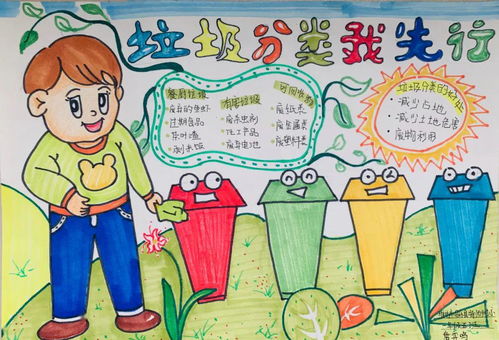 垃圾分类我先行
餐厨垃圾
过期食品
茶叶渣
剩米饭
有害垃圾
杀虫剂
化工产品
废弃电池
可回收物
废纸类
废金属类
废塑料类
垃圾分类的好处
减少占地
减少土地危害
废物利用